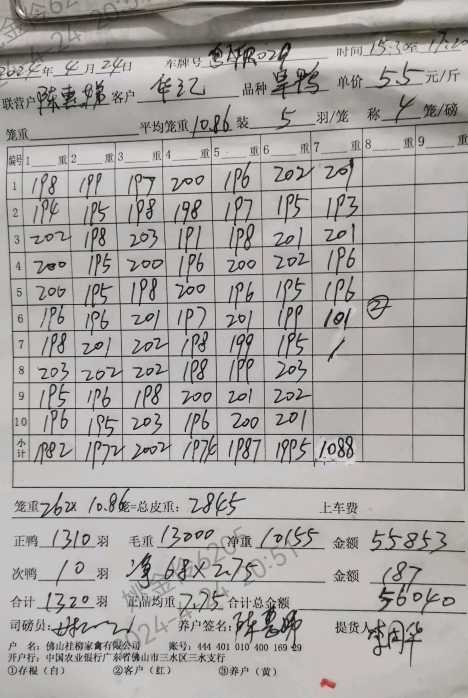 2024年4月24日 车牌号 时间15:30至17:20
联营户 陈惠娣 客户 华记 品种 旱鸭 单价 5.5 元/斤
笼重 平均笼重10.86 装 5 羽/笼 称 4 笼/磅
编号 1 重 2 重 3 重 4 重 5 重 6 重 7 重 8 重 9 重
1 198 199 197 200 196 202 201
2 194 195 198 198 197 195 193
3 202 198 203 191 198 201 201
4 200 195 200 196 200 202 196
5 200 195 198 200 196 195 196
6 196 196 201 197 201 199 101 ②
7 198 201 202 198 199 195
8 203 202 202 198 199 203
9 195 196 198 200 201 202
10 196 195 203 196 200 201
小计 1982 1972 2002 1974 1987 1995 1088
笼重262X10.86笼=总皮重:2845 上车费
正鸭 1310 羽 毛重 13000 净重 10155 金额 55853
次鸭 10 羽 净 68×2.75 金额 187
合计 1320 羽 正品均重 7.75 合计总金额 56040
司磅员: 养户签名: 陈惠娣 提货人 李国华
户 名:佛山桂柳家禽有限公司 账号:444 401 010 400 169 29
开户行:中国农业银行广东省佛山市三水区三水支行
①存根(白) ②客户(红) ③养户(黄)
姚金金6205
2024-4-24 20:51